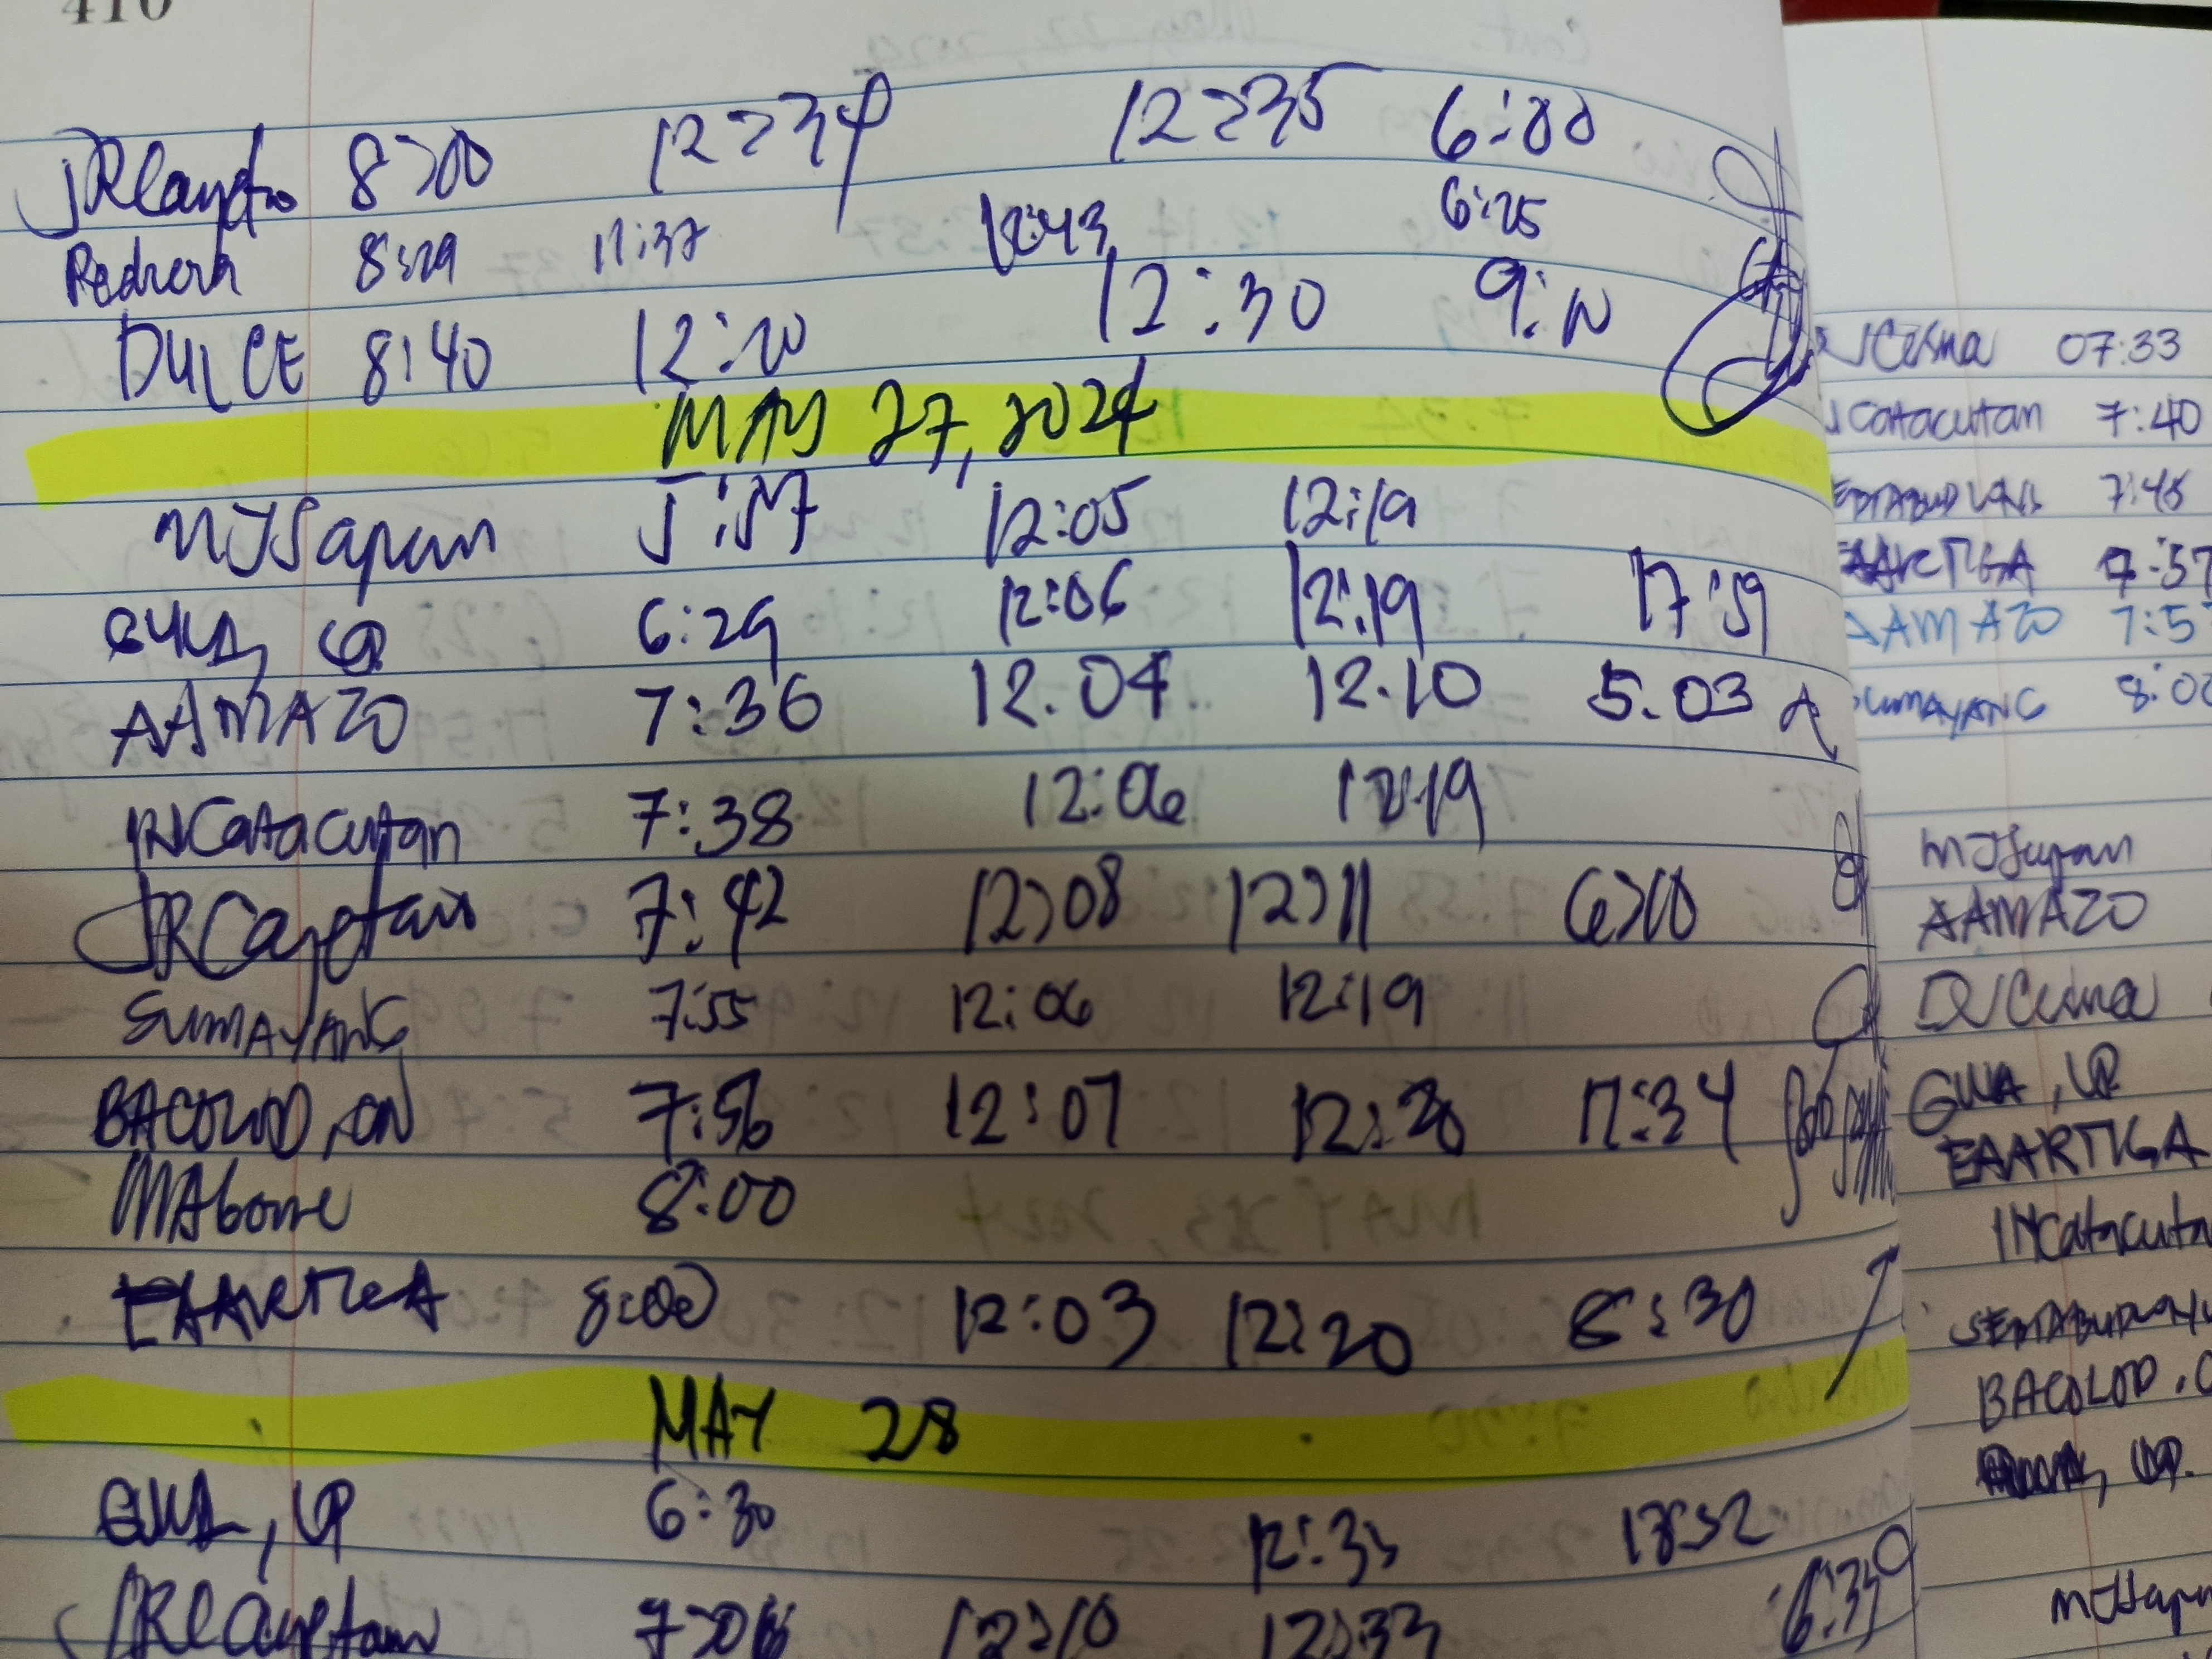 410
JRCayetano 8:00 12:34 12:35 6:00
8:29 11:37 12:43 6:25
DULCE 8:40 12:20 12:30 9:10
MAY 27, 2024
MJSapan 5:57 12:05 12:19
GULA, LP 6:29 12:06 12:19 17:59
AAMAZO 7:36 12.04 12.10 5.03 A
INCatacutan 7:38 12:06 12:19
JRCayetano 7:42 12:08 12:11 6:10
SUMAYANG 7:55 12:06 12:19
BACOLOD, ON 7:56 12:07 12:20 17:34
8:00
EAARTIGA 8:00 12:03 12:20 8:30
MAY 28
GULA, LP 6:30 12:33
JRCayetano 12:10 12:33
Cesna 07:33
Catacutan 7:40
7:45
EAARTIGA 7:57
AAMAZO 7:5
SUMAYANG 8:02
MJSapan
AAMAZO
Cesna
EAARTIGA
INCatacuta
BACOLOD, O